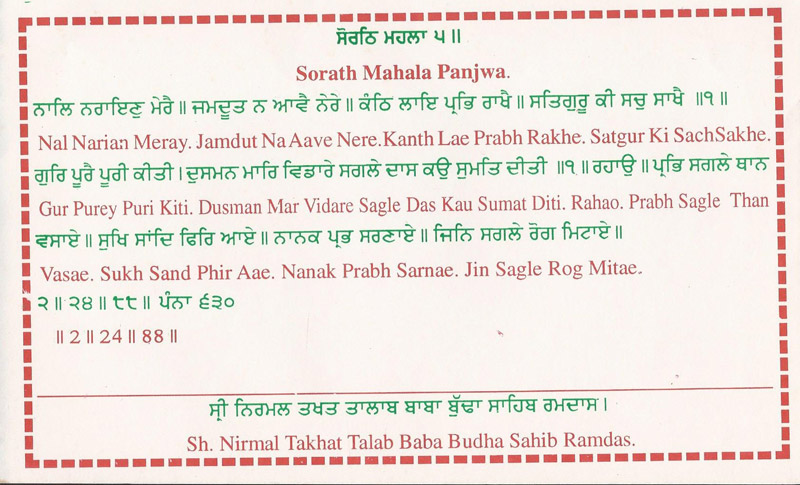 ਸੋਰਠਿ ਮਹਲਾ ੫॥
Sorath Mahala Panjwa.
ਨਾਲਿ ਨਰਾਇਣੁ ਮੇਰੈ॥ ਜਮਦੂਤ ਨ ਆਵੈ ਨੇਰੇ॥ ਕੰਠਿ ਲਾਇ ਪ੍ਰਭਿ ਰਾਖੈ॥ ਸਤਿਗੁਰੂ ਕੀ ਸਚੁ ਸਾਖੈ ॥੧॥
Nal Narian Meray. Jamdut Na Aave Nere.Kanth Lae Prabh Rakhe. Satgur Ki SachSakhe.
ਗੁਰਿ ਪੂਰੈ ਪੂਰੀ ਕੀਤੀ। ਦੁਸਮਨ ਮਾਰਿ ਵਿਡਾਰੇ ਸਗਲੇ ਦਾਸ ਕਉ ਸੁਮਤਿ ਦੀਤੀ ॥੧॥ ਰਹਾਉ॥ ਪ੍ਰਭਿ ਸਗਲੇ ਥਾਨ
Gur Purey Puri Kiti. Dusman Mar Vidare Sagle Das Kau Sumat Diti. Rahao. Prabh Sagle Than
ਵਸਾਏ॥ ਸੁਖਿ ਸਾਂਦਿ ਫਿਰਿ ਆਏ॥ ਨਾਨਕ ਪ੍ਰਭ ਸਰਣਾਏ॥ ਜਿਨਿ ਸਗਲੇ ਰੋਗ ਮਿਟਾਏ॥
Vasae. Sukh Sand Phir Aae. Nanak Prabh Sarnae. Jin Sagle Rog Mitae.
੨॥੨੪॥੮੮॥ ਪੰਨਾ ੬੩੦
॥2॥24॥88॥
ਸ੍ਰੀ ਨਿਰਮਲ ਤਖਤ ਤਾਲਾਬ ਬਾਬਾ ਬੁੱਢਾ ਸਾਹਿਬ ਰਮਦਾਸ।
Sh. Nirmal Takhat Talab Baba Budha Sahib Ramdas.